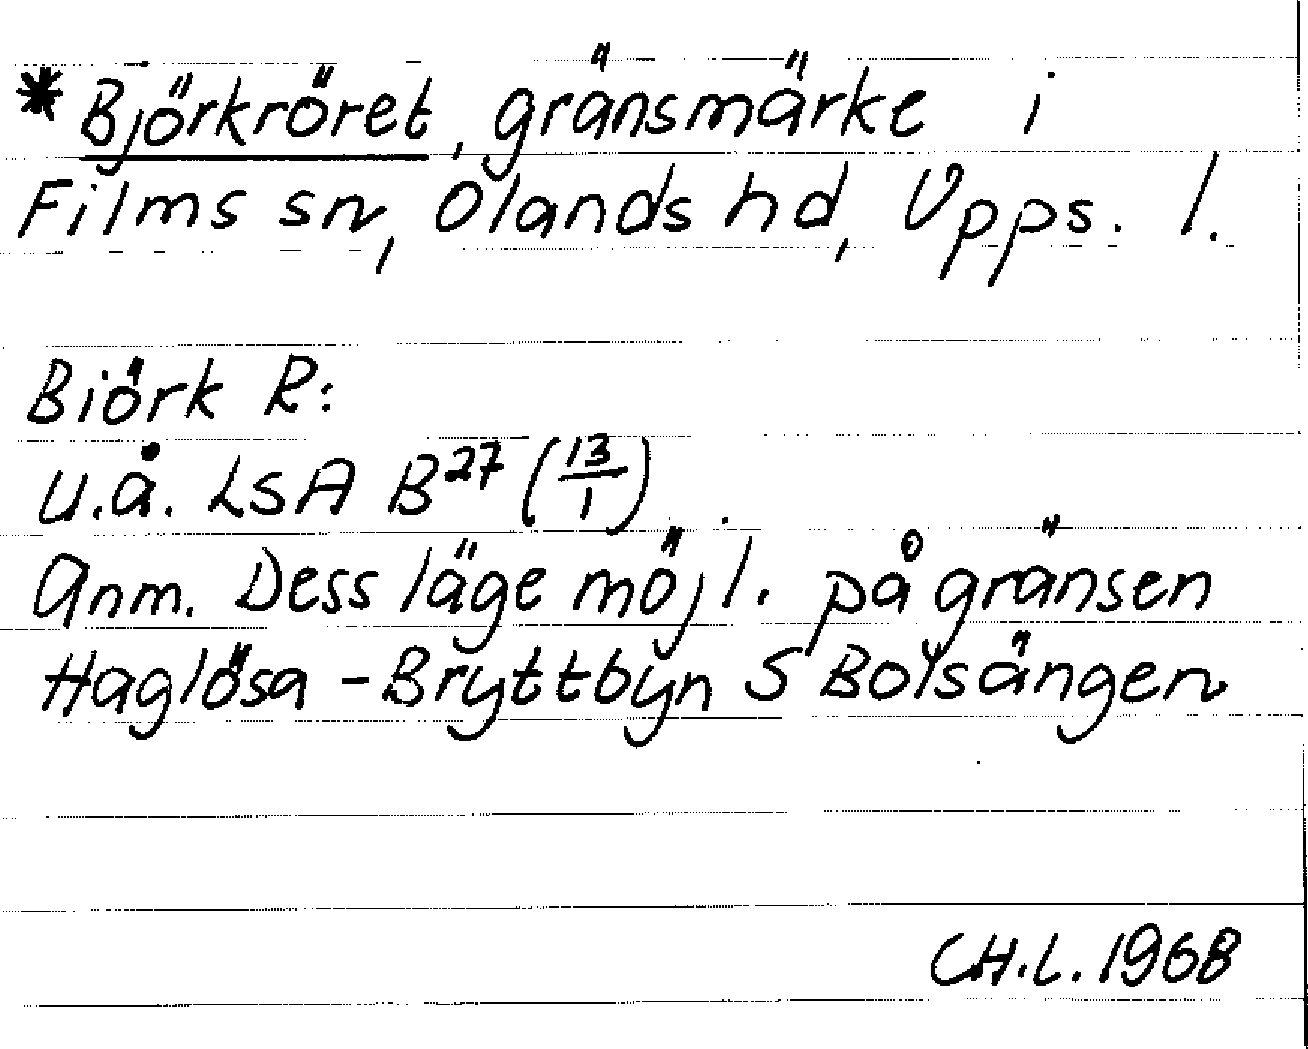 * Björkröret, gränsmärke i
Films sn, Olands hd, Upps. l.
Biörk R:
u.å. LSA B²⁷ (13/1)
Anm. Dess läge möjl. på gränsen
Haglösa - Bryttbyn S Bolsängen
CH.L. 1968